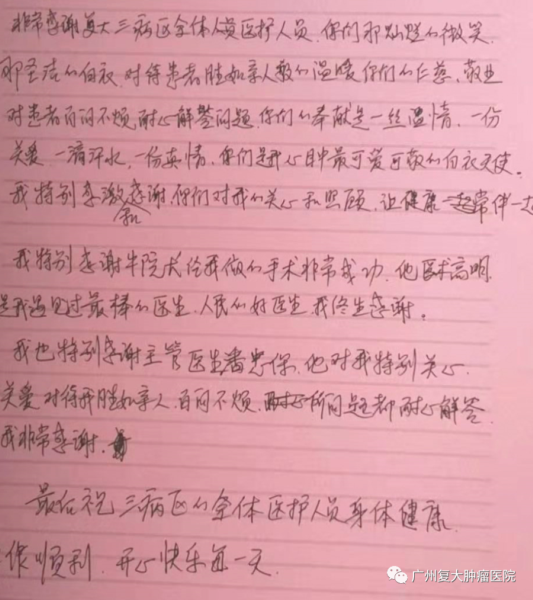 非常感谢复大三病区全体人员医护人员，你们那灿烂的微笑，
那圣洁的白衣，对待患者胜如亲人般的温暖，你们的仁慈、敬业
对患者百问不烦，耐心解答问题，你们的奉献是一丝温情、一份
关爱、一滴汗水，一份真情，你们是我心目中最可爱可敬的白衣天使。
我特别感激和感谢，你们对我的关心和照顾，让健康一起常伴一边
我特别感谢牛院长给我做的手术非常成功，他医术高明，
是我遇见过最棒的医生、人民的好医生，我终生感谢。
我也特别感谢主管医生潘忠保，他对我特别关心
关爱对待我胜如亲人，百问不烦，所问题都耐心解答
我非常感谢。
最后祝三病区的全体医护人员身体健康
作顺利、开心快乐每一天
广州复大肿瘤医院